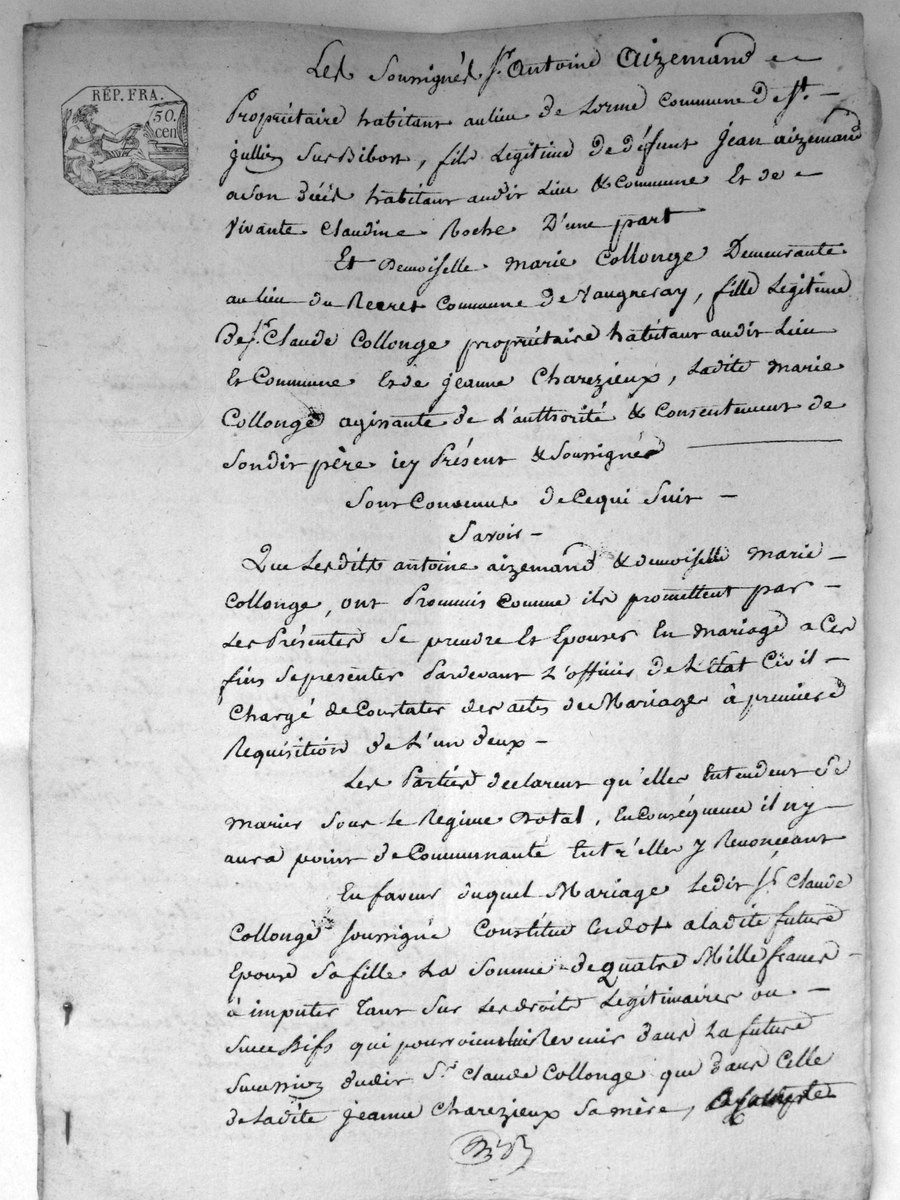 RÉP. FRA.
50.
cen
Les Soussignés Sr. Antoine Aizemand
Propriétaire habitant au lieu de Lorme Commune de St. -
Jullien Sur Bibost, fils Légitime de défunt Jean aizemand
a son décès habitant audit Lieu & Commune Et de -
vivante Claudine Roche D'une part
Et Demoiselle Marie Collonge Demeurante
au lieu du Recret Commune de Vaugneray, fille Légitime
De Sr. Claude Collonge propriétaire habitant audit Lieu
Et Commune Et de Jeanne Charezieux, Ladite Marie
Collonge agissante de L'authorité & Consentement de
Sondit père icy Présent & Soussigné
Sont Convenus de Ce qui Suit -
Savoir -
Que Lesdits antoine aizemand & demoiselle Marie -
Collonge, ont Prommis Comme ils promettent par -
Les Présentes Se prendre Et Epouser En Mariage a Ces
fins Se présenter Pardevant L'officier de L'Etat Civil -
Chargé de Constater des actes de Mariage à premiere
Requisition de L'un deux -
Les Parties declarent qu'elles Entendent Se
marier Sous Le Regime Dotal, En Conséquence il ny -
aura point de Communauté Entr'elles y Renonceant
En faveur duquel Mariage Ledit Sr. Claude
Collonge Soussigné Constitue En dot a ladite future
Epouse Sa fille La Somme de Quatre Mille francs -
à imputer Tant Sur Les droits Légitimaires ou. -
Successifs qui pourroient lui Revenir dans La future
Succession dudit Sr. Claude Collonge que dans Celle
de Ladite Jeanne Charezieux Sa mère,